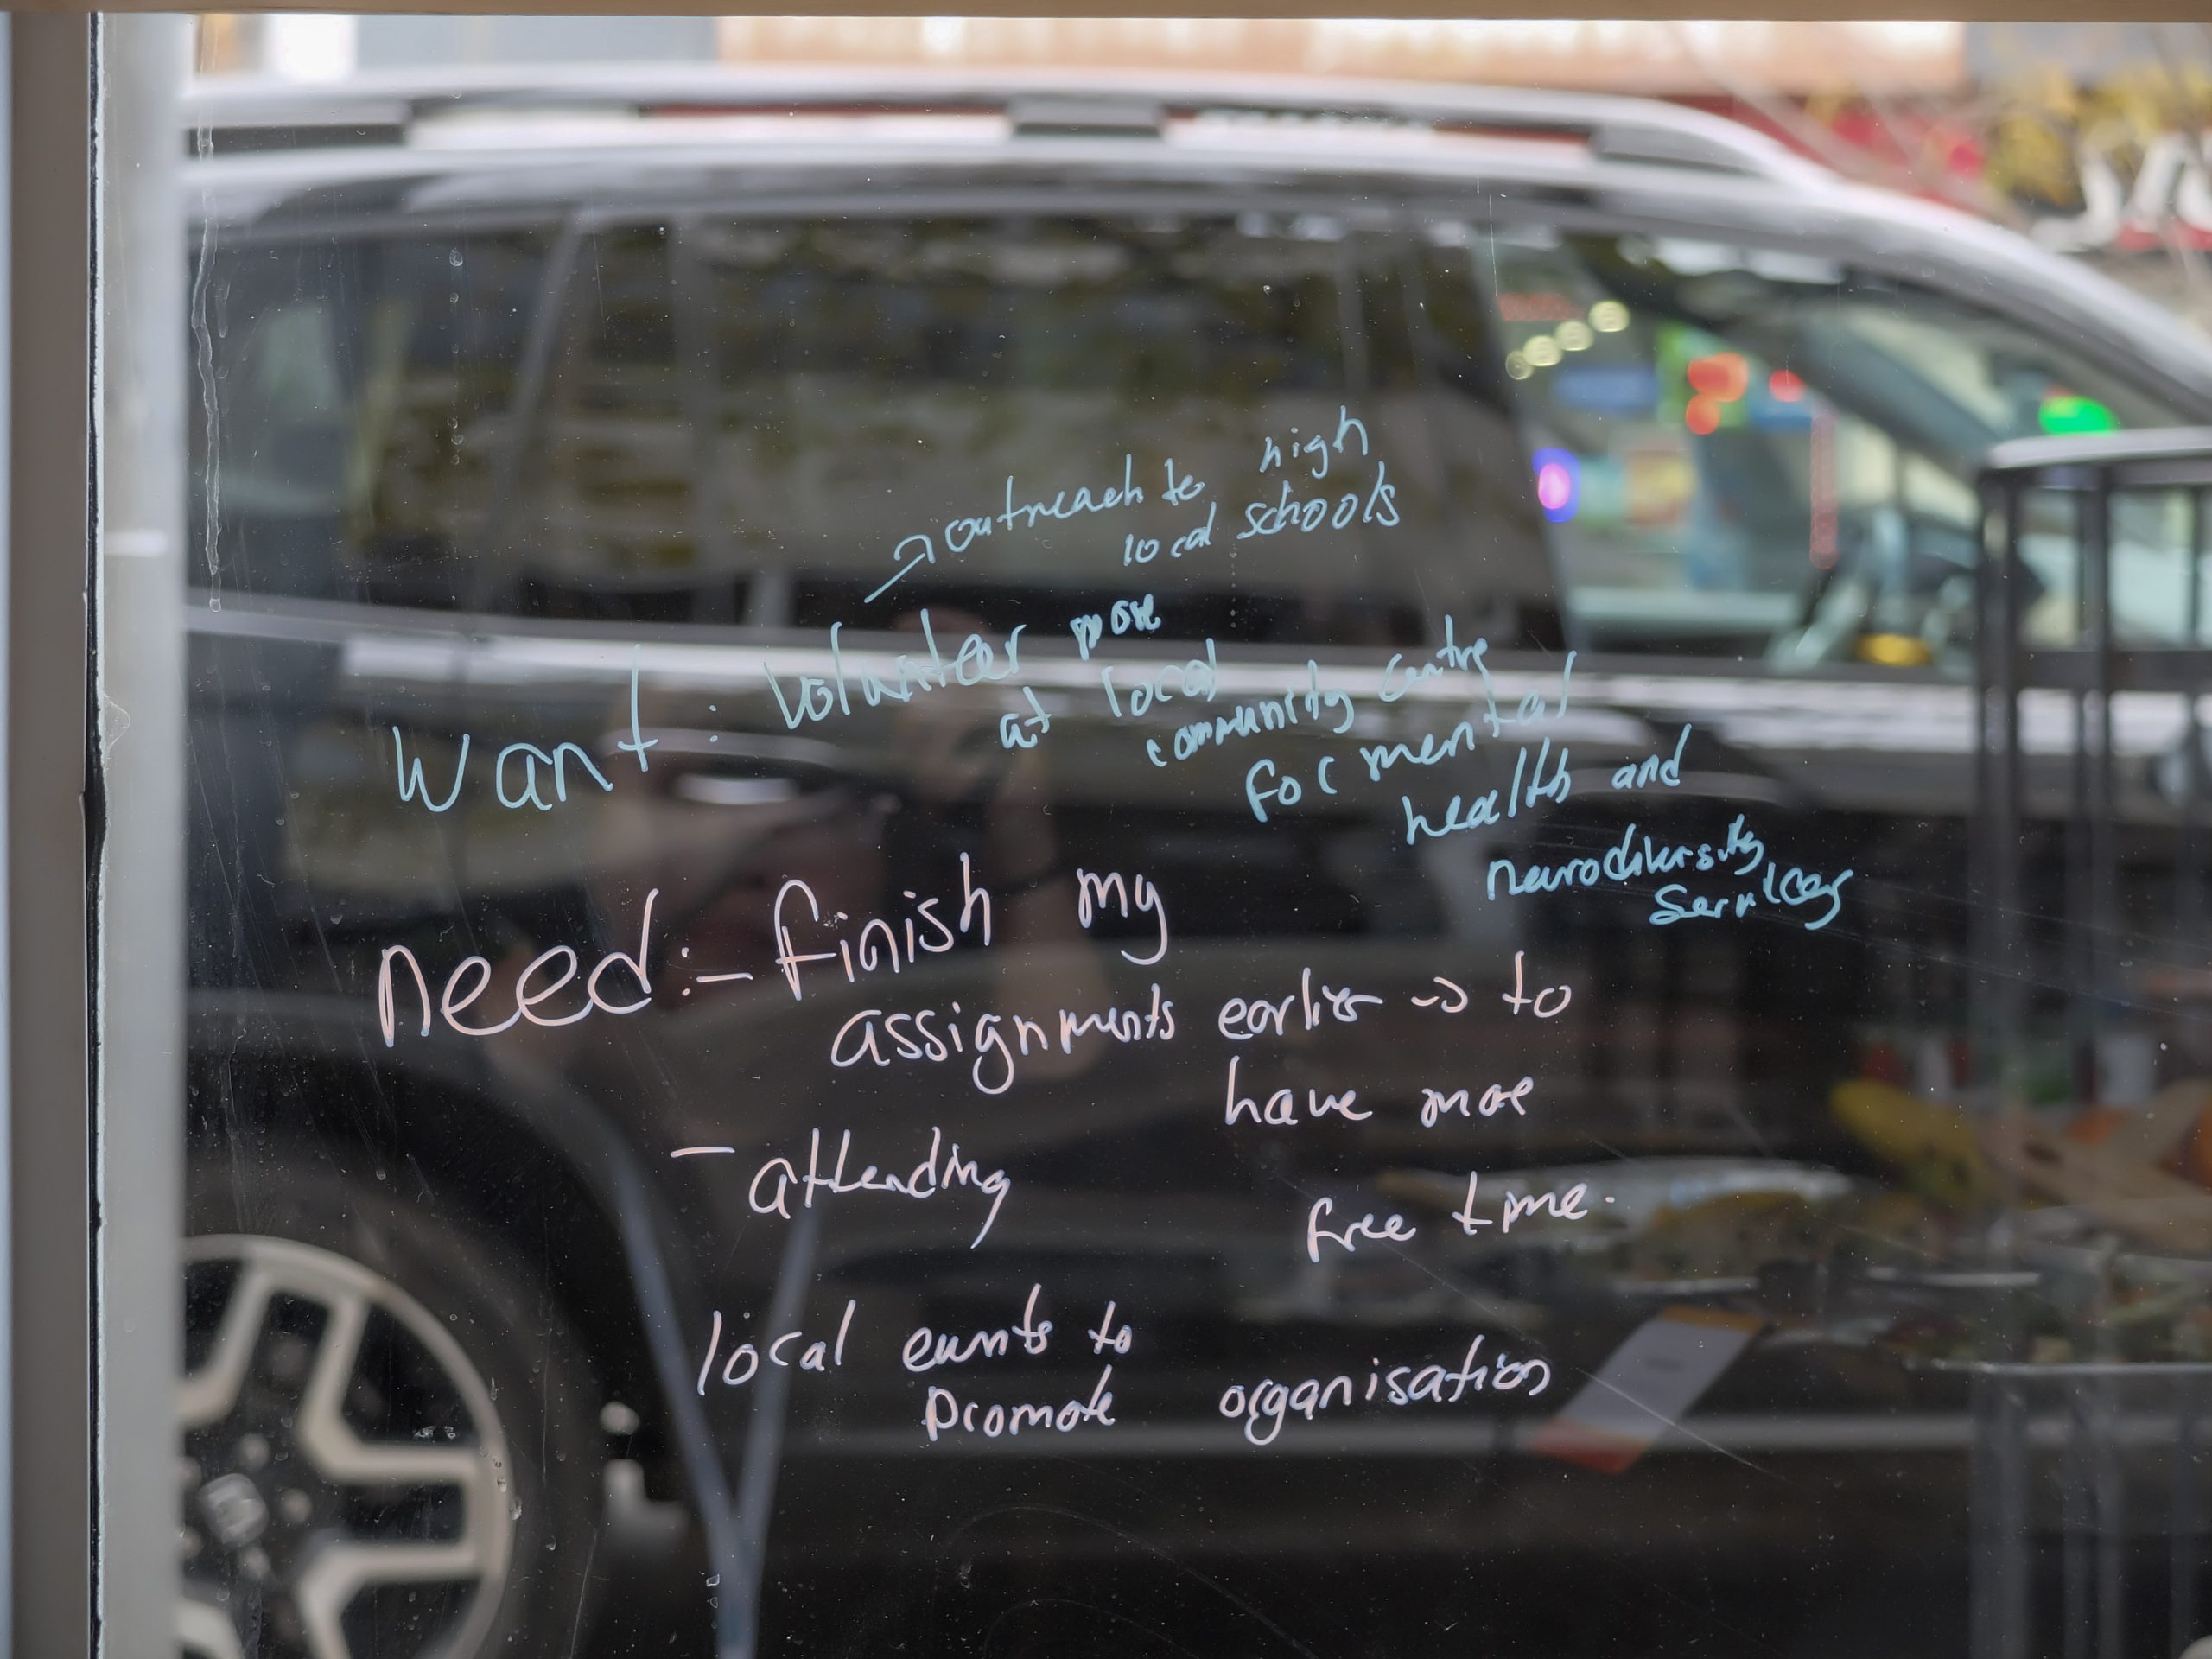 → outreach to high
local schools
Want : Volunteer more
at local
community centre
for mental
health and
neurodiversity
services
need :- finish my
assignments earlier → to
have more
free time.
- attending
local events to
promote organisation